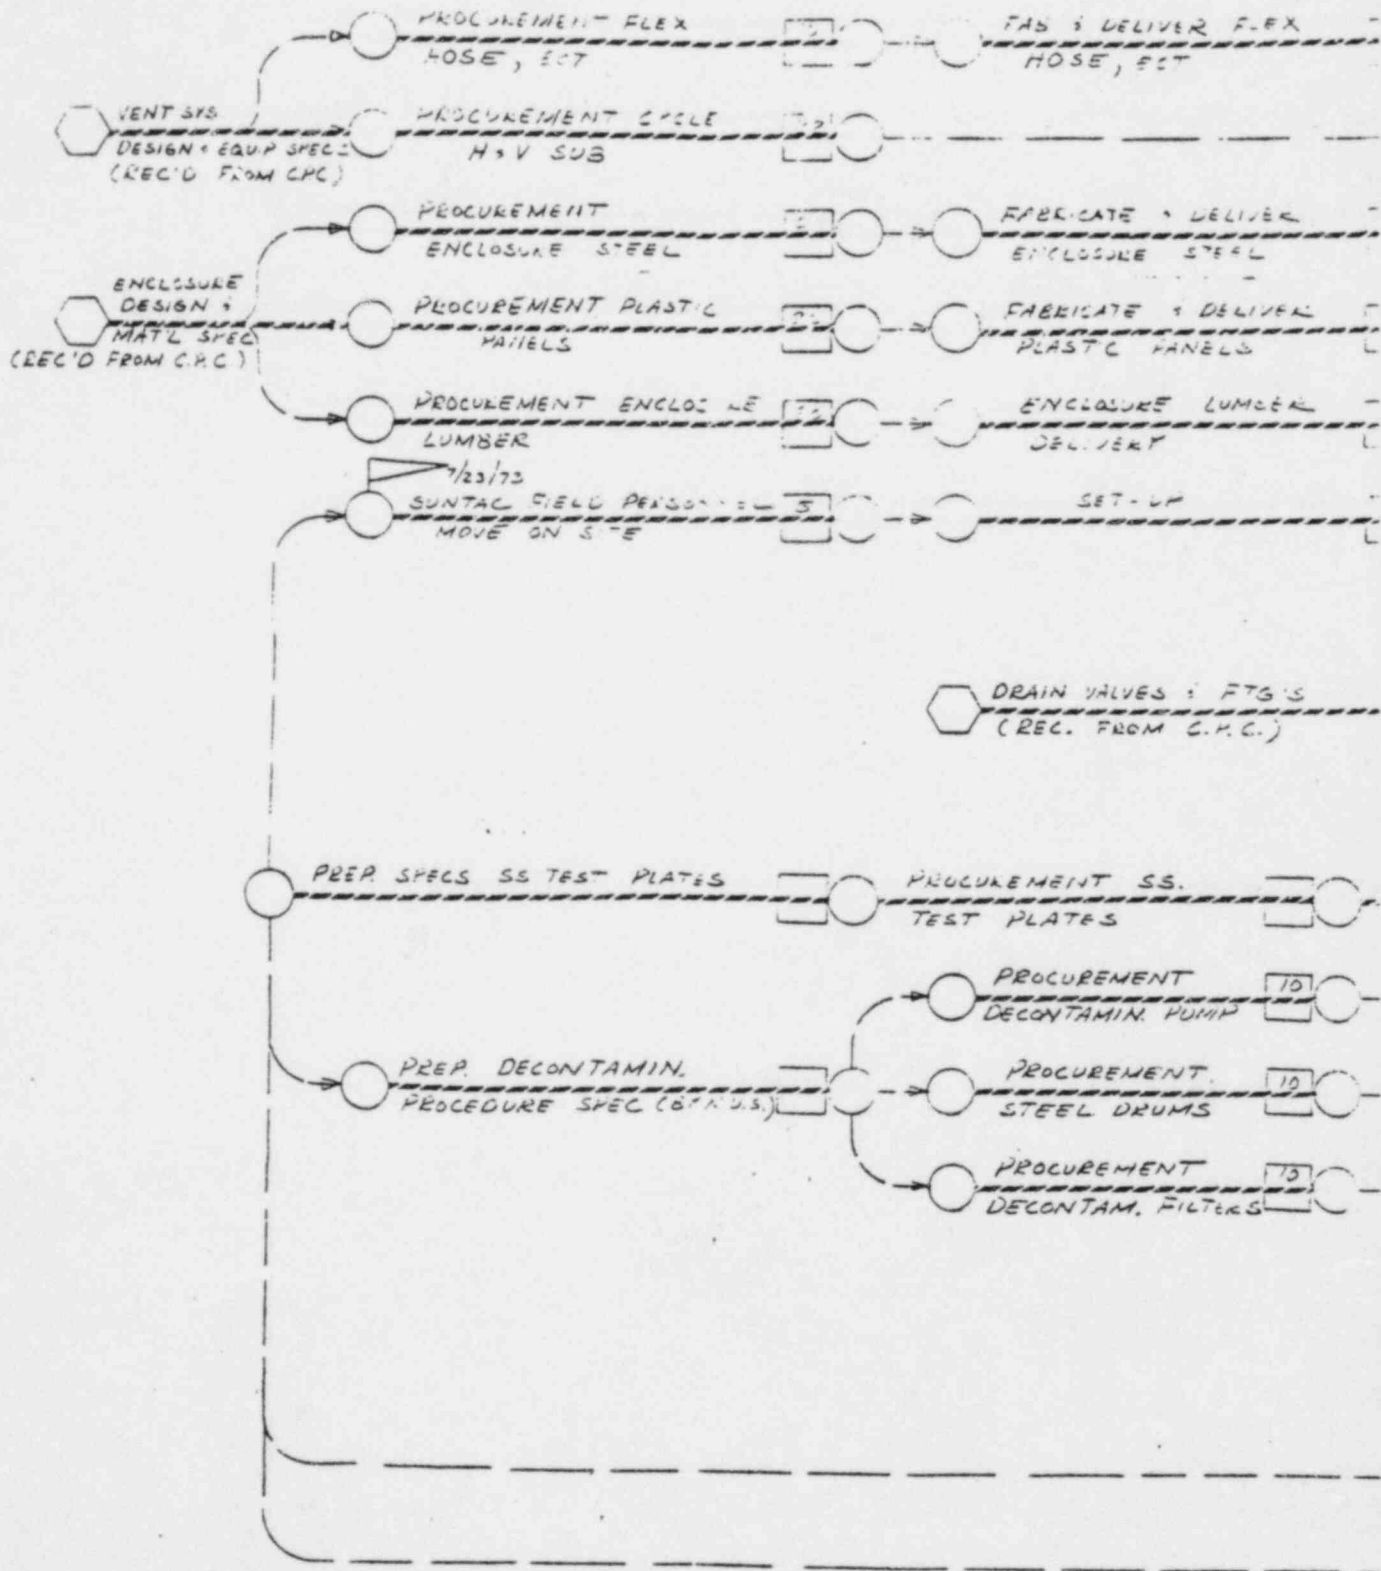 PROCUREMENT FLEX
HOSE, ECT
FAB & DELIVER FLEX
HOSE, ECT
VENT SYS
DESIGN & EQUIP SPECS
(REC'D FROM CPC)
PROCUREMENT CYCLE
H & V SUB
PROCUREMENT
ENCLOSURE STEEL
FABRICATE & DELIVER
ENCLOSURE STEEL
ENCLOSURE
DESIGN &
MAT'L SPEC
(REC'D FROM C.P.C.)
PROCUREMENT PLASTIC
PANELS
FABRICATE & DELIVER
PLASTIC PANELS
PROCUREMENT
LUMBER
ENCLOSURE LUMBER
DELIVERY
7/23/73
SUNTAC FIELD PERSONNEL
MOVE ON SITE
5
SET-UP
DRAIN VALVES & FTG'S
(REC. FROM C.P.C.)
PREP. SPECS SS TEST PLATES
PROCUREMENT SS.
TEST PLATES
PROCUREMENT
DECONTAMIN. PUMP
10
PREP. DECONTAMIN.
PROCEDURE SPEC
PROCUREMENT
STEEL DRUMS
10
PROCUREMENT
DECONTAM. FILTERS